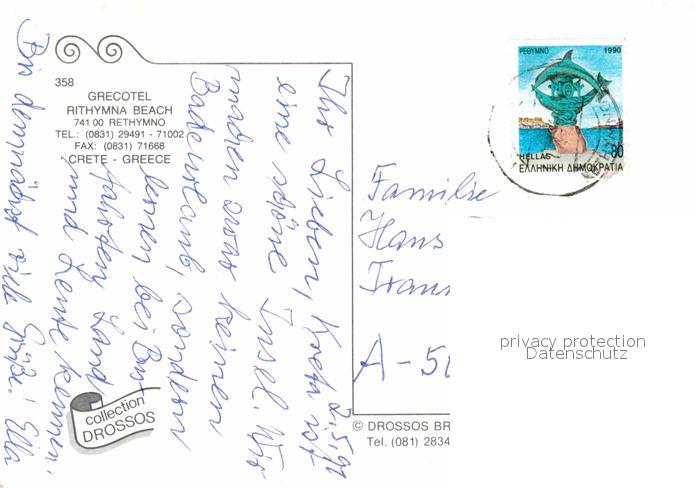 358
GRECOTEL
RITHYMNA BEACH
741 00 RETHYMNO
TEL.: (0831) 29491 - 71002
FAX: (0831) 71668
CRETE - GREECE
2.5.91
Ihr Lieben, Kreta ist
eine schöne Insel. Wir
machen zwar keinen
Badeurlaub, sondern
lernen bei Bus-
fahrten Land
und Leute kennen.
Bis demnächst viele Grüße! Ella
collection
DROSSOS
ΡΕΘΥΜΝΟ 1990
HELLAS 80
ΕΛΛΗΝΙΚΗ ΔΗΜΟΚΡΑΤΙΑ
Familie
Hans
A-50
privacy protection
Datenschutz
© DROSSOS BR
Tel. (081) 2834